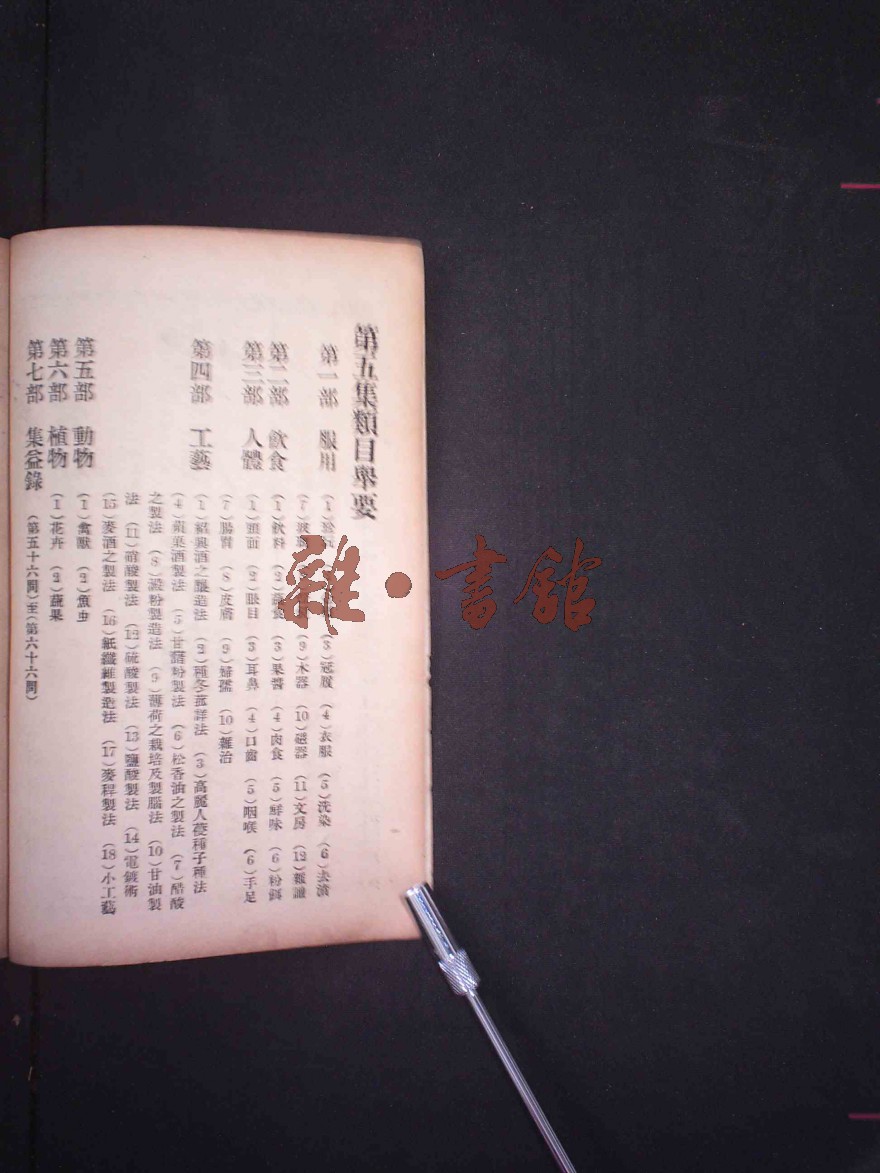 第五集類目舉要
第一部 服用 (3)冠履 (4)衣服 (5)洗染 (6)去漬
(9)木器 (10)磁器 (11)文房 (12)雜誰
第二部 飲食 (1)飲料 (3)果醬 (4)肉食 (5)鮮味 (6)粉餌
第三部 人體 (1)頭面 (2)眼目 (3)耳鼻 (4)口齒 (5)咽喉 (6)手足
(7)腸胃 (8)皮膚 (9)婦孺 (10)雜治
第四部 工藝 (1)紹興酒之釀造法 (2)種冬菰詳法 (3)高麗人葠種子種法
(4)葡萄酒製法 (5)甘藷粉製法 (6)松香油之製法 (7)醋酸
之製法 (8)澱粉製造法 (9)薄荷之栽培及製腦法 (10)甘油製
法 (11)硝酸製法 (12)硫酸製法 (13)鹽酸製法 (14)電鍍術
(15)麥酒之製法 (16)紙纖維製造法 (17)麥稈製法 (18)小工藝
第五部 動物 (1)禽獸 (2)魚虫
第六部 植物 (1)花卉 (2)蔬果
第七部 集益錄 (第五十六問)至(第六十六問)
雜·書館